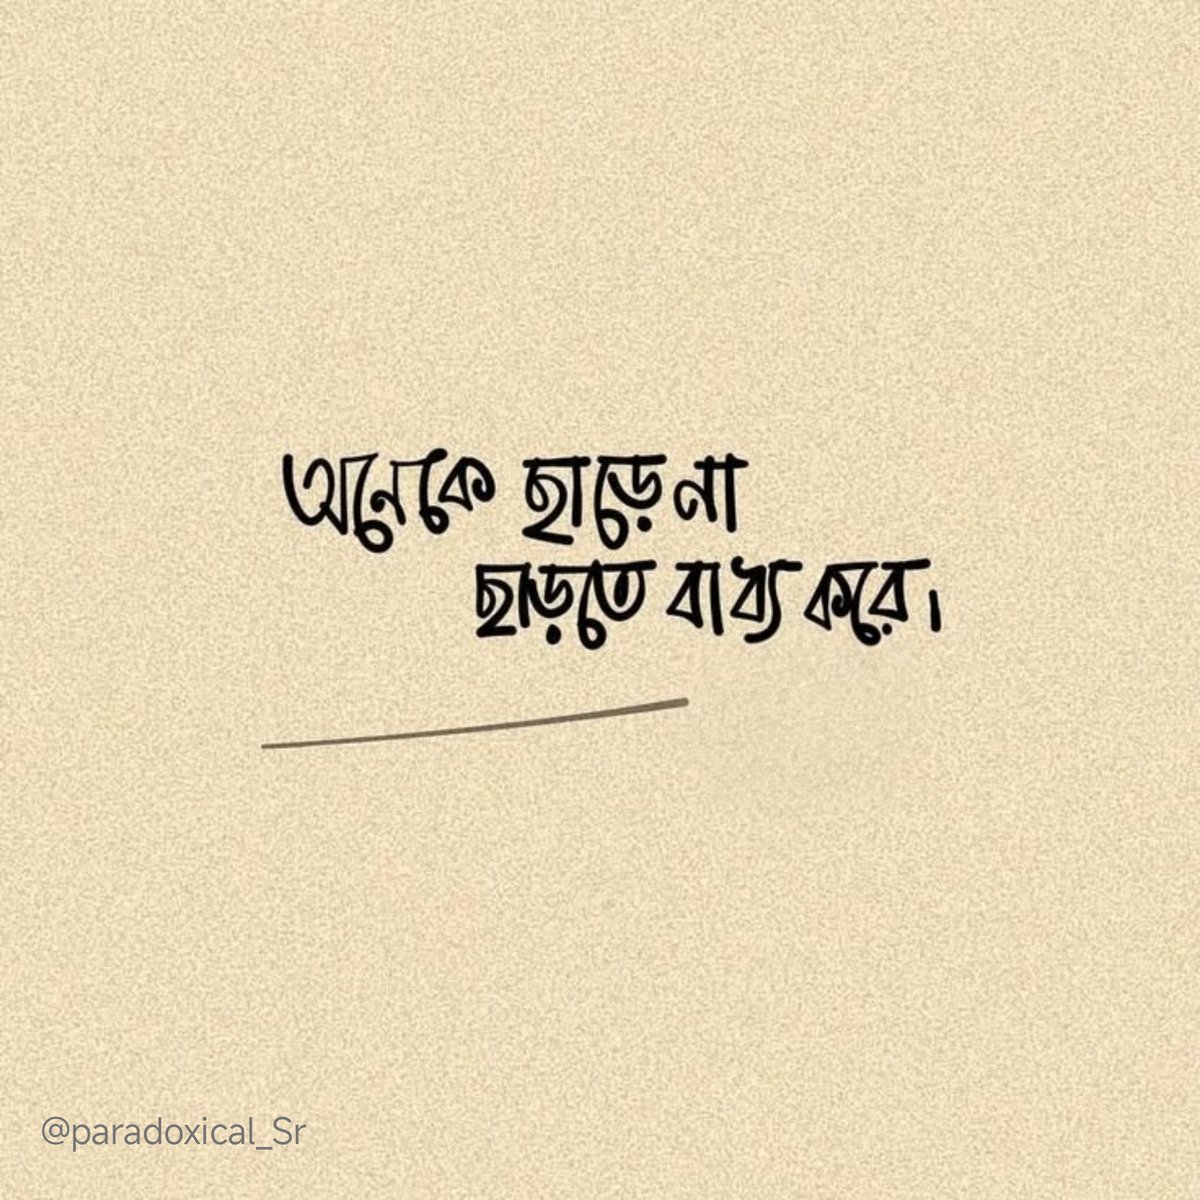 অনেকে ছাড়ে না
ছাড়তে বাধ্য করে।
@paradoxical_Sr